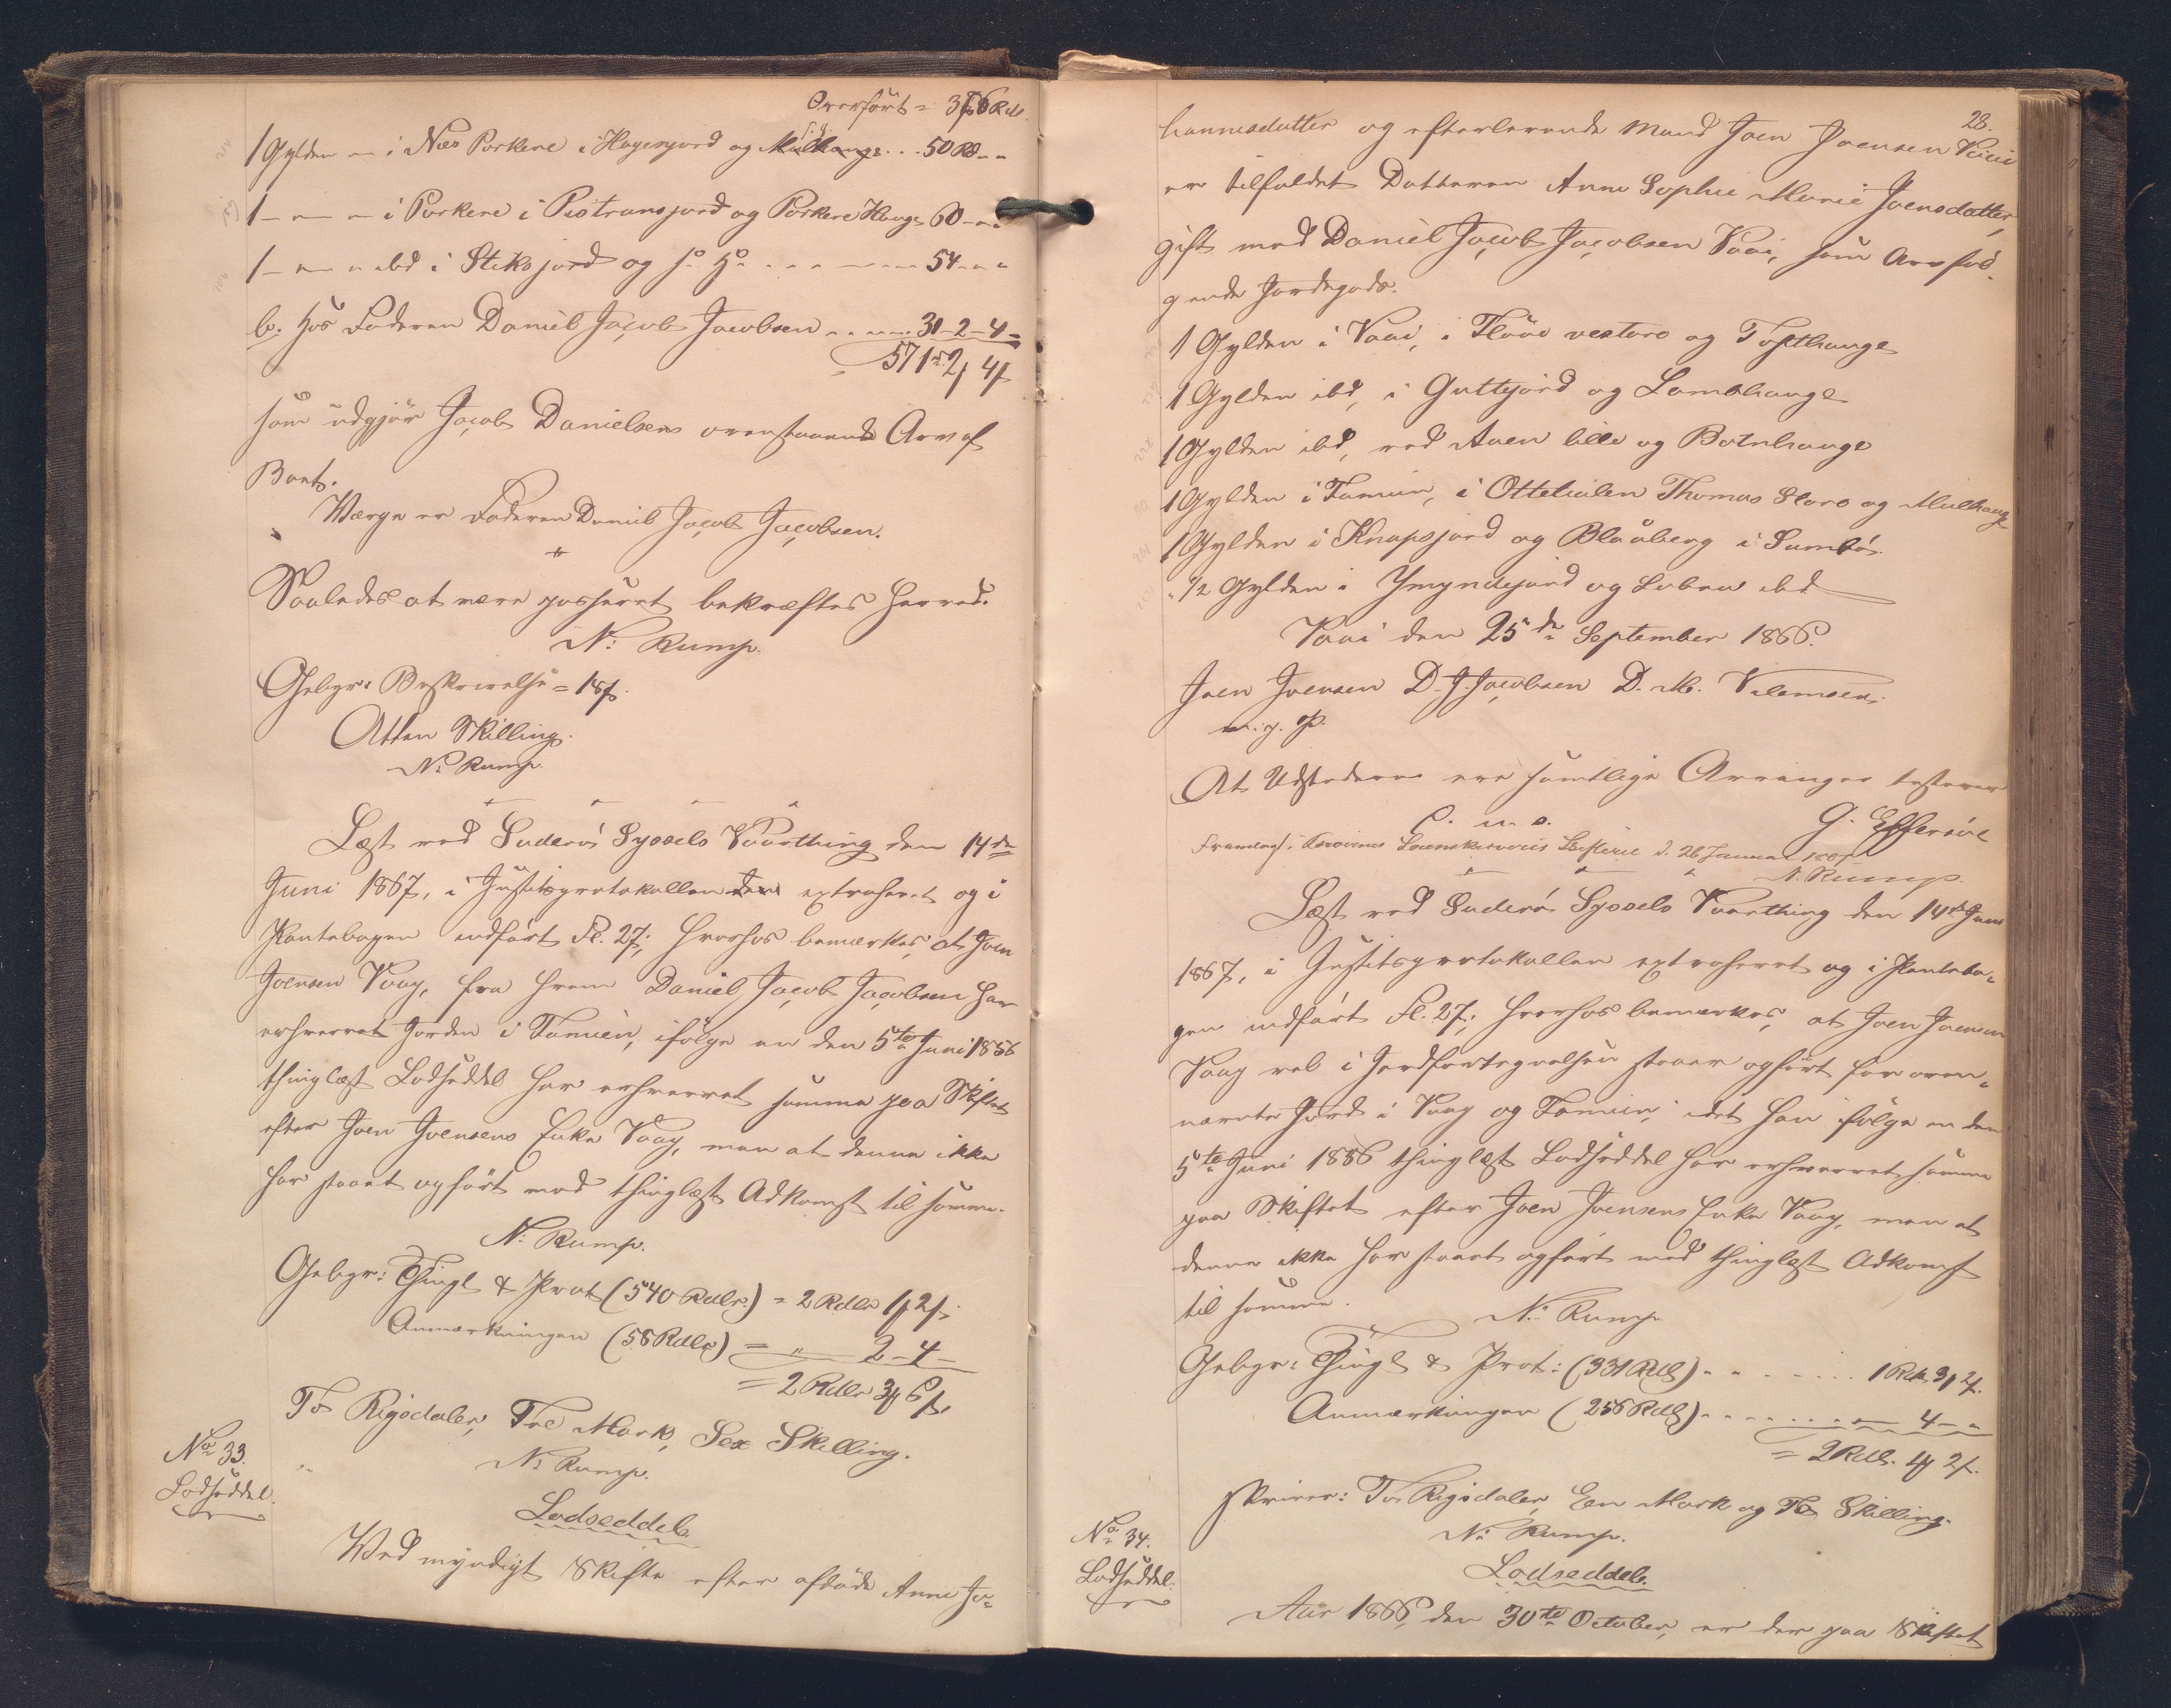 Overført = 376 Rdl.
1 Gylden — i Næs Porkere i Hagesjord og ... 50 Rd - -
1 — — — i Porkere i Pistransjord og Porkere Hauge 60 - - -
1 — — — ibd i Stiksjord og s. H. - - - - - 54 - - -
b. hos Faderen Daniel Jacob Jacobsen - - - - 31 - 2 - 4 -
571 rd 2 4
som udgjør Jacob Danielsens ovenstaaende Arv af
Boet.
Værge er Faderen Daniel Jacob Jacobsen.
Saaledes at være passeret bekræftes herved.
N. Rump.
Gebyr: Beskrivelse = 18 s.
Atten Skilling.
N. Rump.
Læst ved Suderø Syssels Vaarthing den 14de
Juni 1867, i Justitsprotokollen extraheret og i
Pantebogen indført Fl. 27; hvorhos bemærkes, at Joen
Joensen Vaag, fra hvem Daniel Jacob Jacobsen har
erhvervet Jorden i Famien, ifølge en den 5te Juni 1856
thinglæst Lodseddel har erhvervet samme paa Skiftet
efter Joen Joensens Enke Vaag, men at denne ikke
har staaet opført med thinglæst Adkomst til samme.
N. Rump.
Gebyr: Thingl & Prot (540 Rdlr.) = 2 Rdlr 1 2 s.
Anmærkningen (58 Rdlr) = " 2 - 4 -
= 2 Rdlr 3 6 s.
To Rigsdaler, Tre Mark, Sex Skilling.
N. Rump.
No 33.
Lodseddel.
Lodseddel.
Ved myndigt Skifte efter afdøde Anne Jo-
28.
hannesdatter og efterlevende Mand Joen Joensen Vaai
er tilfaldet Datteren Anne Sophie Marie Joensdatter,
gift med Daniel Jacob Jacobsen Vaai, som Arv føl-
gende Jordegods.
1 Gylden i Vaai, i Fløue vestare og Tofthauge
1 Gylden ibd, i Guttejord og Lambhauge
1 Gylden ibd, ved Aaen lille og Botnhauge
1 Gylden i Famien, i Ottetialen Thomas Stora og Mulhauge
1 Gylden i Knapsjord og Blaaberg i Sumbø.
1/2 Gylden i Ymyndejord og Laban ibd
Vaai den 25de September 1866.
Joen Joensen D. J. Jacobsen D. M. Vilemsen.
m. p. P.
At Udstederne ere samtlige Arvinger testerer
C. u. s. G. Effersøe
Fremlagt i Færøernes Sorenskriveries Skifteret d. 26 Januar 1867
N. Rump.
Læst ved Suderø Syssels Vaarthing den 14de Juni
1867, i Justitsprotokollen extraheret og i Pantebo-
gen indført Fl. 27; hvorhos bemærkes, at Joen Joensen
Vaag vel i Jordfortegnelsen staaer opført for oven-
nævnte Jord i Vaag og Famien, idet han ifølge en den
5te Juni 1856 thinglæst Lodseddel har erhvervet samme
paa Skiftet efter Joen Joensens Enke Vaag, men at
denne ikke har staaet opført med thinglæst Adkomst
til samme.
N. Rump
Gebyr: Thingl & Prot: (331 Rdl) - - - - - 1 Rdl. 3 2 s.
Anmærkningen (256 Rdl) - - - - - - 4 - -
= 2 Rdl. 1 2 s.
skriver: To Rigsdaler, Een Mark og To Skilling.
N. Rump.
No 34.
Lodseddel.
Lodseddel.
Aar 1866, den 30te October, er der paa Skiftet